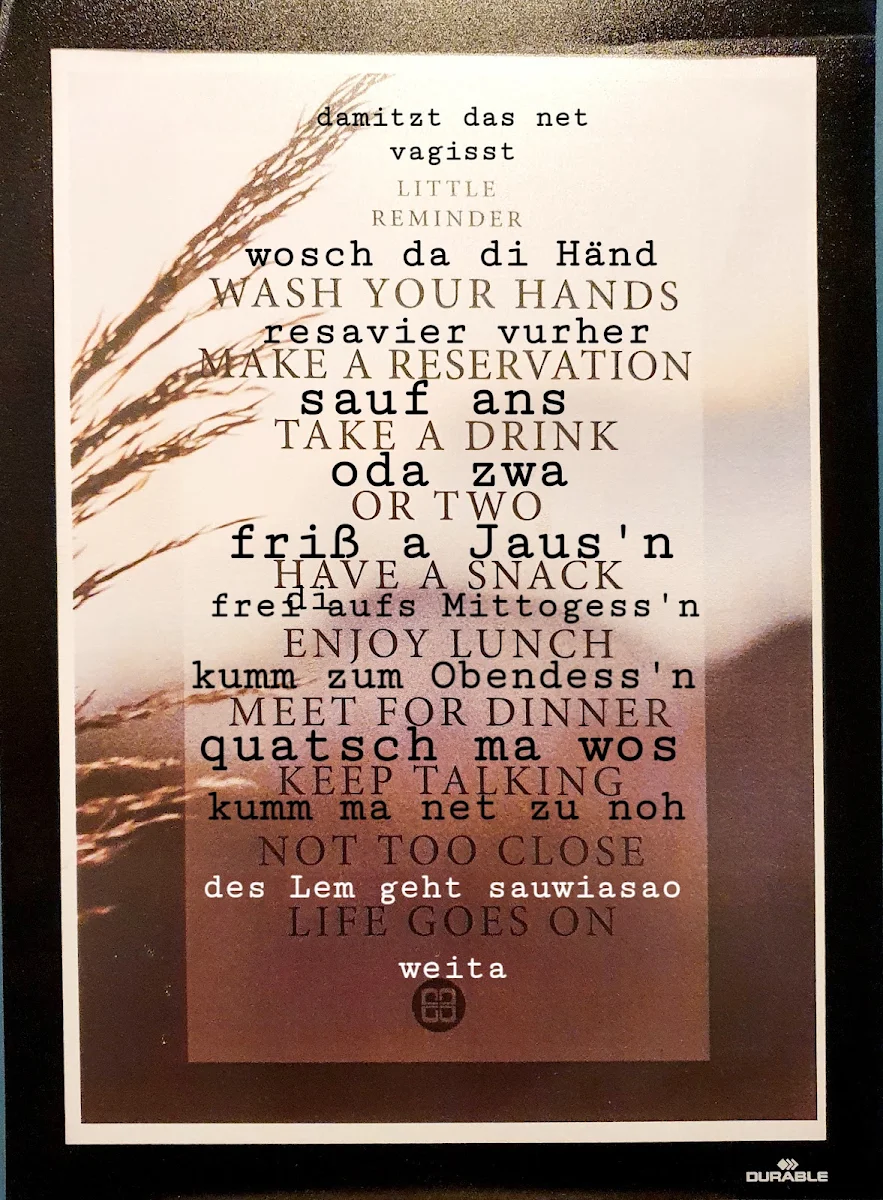 damitzt das net
vagisst
LITTLE
REMINDER
wosch da di Händ
WASH YOUR HANDS
resavier vurher
MAKE A RESERVATION
sauf ans
TAKE A DRINK
oda zwa
OR TWO
friß a Jaus'n
HAVE A SNACK
frei di aufs Mittogess'n
ENJOY LUNCH
kumm zum Obendess'n
MEET FOR DINNER
quatsch ma wos
KEEP TALKING
kumm ma net zu noh
NOT TOO CLOSE
des Lem geht sauwiasao
LIFE GOES ON
weita
DURABLE